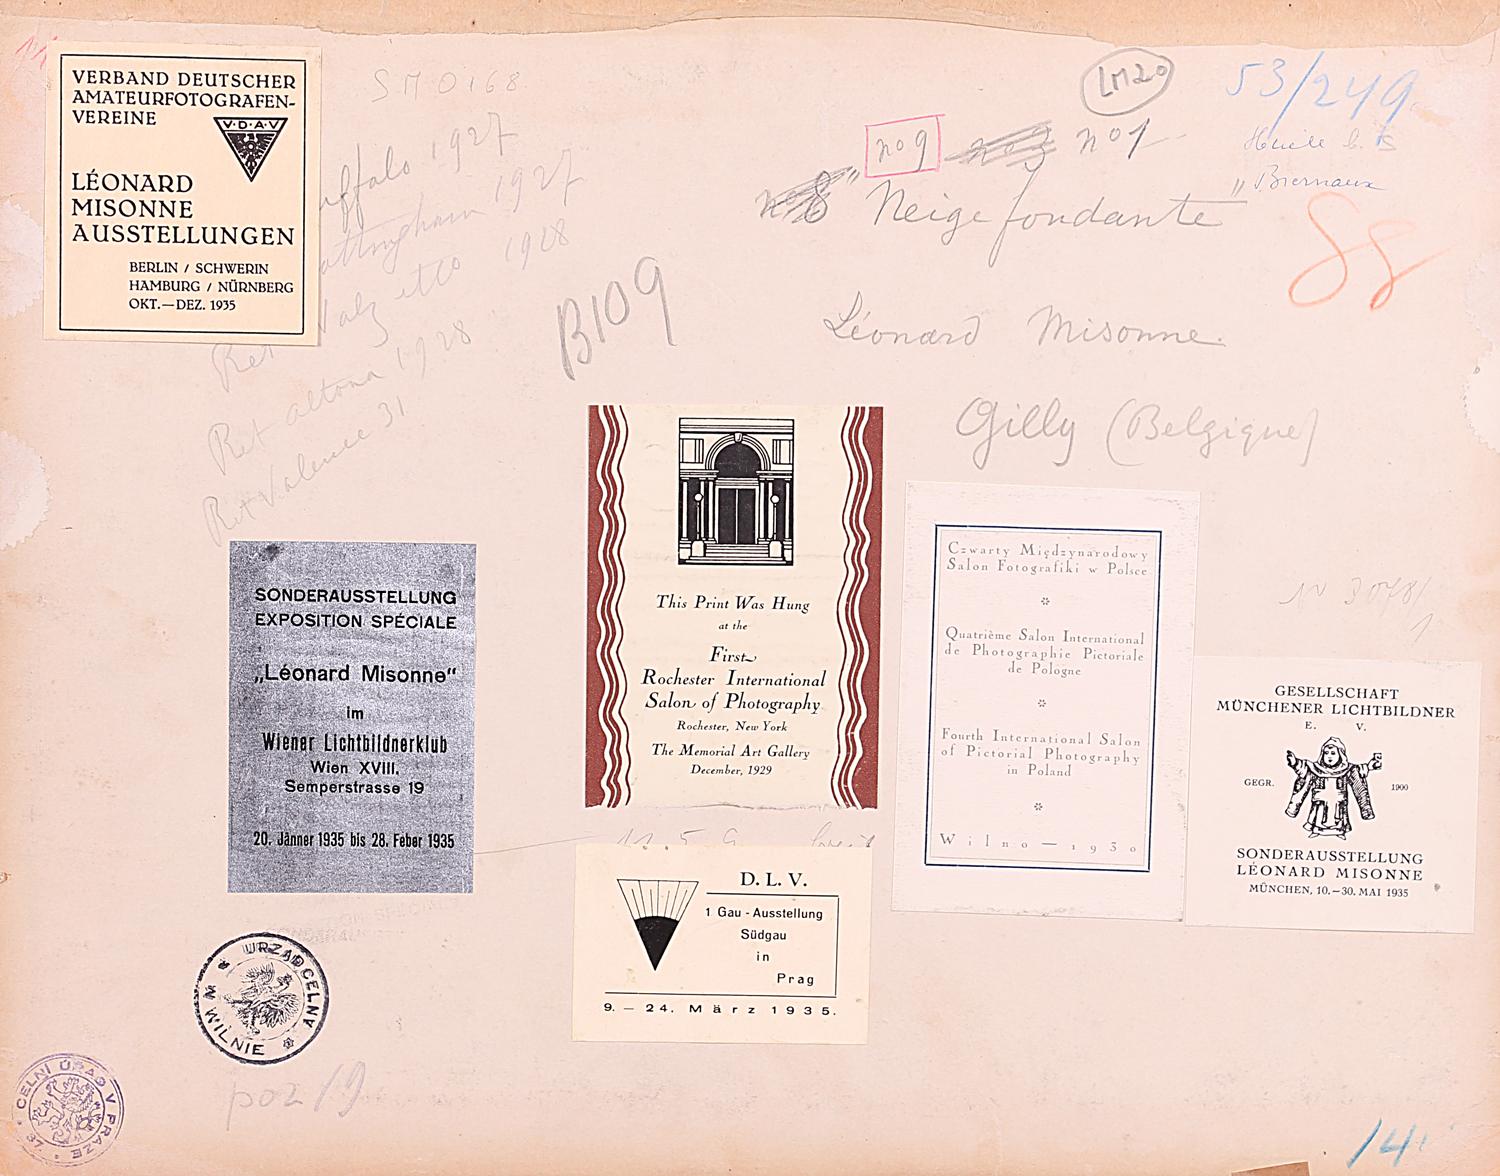 VERBAND DEUTSCHER
AMATEURFOTOGRAFEN-
VEREINE
V·D·A·V
LÉONARD
MISONNE
AUSSTELLUNGEN
BERLIN / SCHWERIN
HAMBURG / NÜRNBERG
OKT.—DEZ. 1935
SM0168
uffalo 1927
ottingham 1927
1928
Ret altona 1928
Ret Valence 31
B109
LM20
53/249
no 9
no 1
"Neige fondante"
Biernaux
88
Léonard Misonne.
Gilly (Belgique)
SONDERAUSSTELLUNG
EXPOSITION SPÉCIALE
„Léonard Misonne“
im
Wiener Lichtbildnerklub
Wien XVIII.
Semperstrasse 19
20. Jänner 1935 bis 28. Feber 1935
This Print Was Hung
at the
First
Rochester International
Salon of Photography
Rochester, New York
The Memorial Art Gallery
December, 1929
Czwarty Międzynarodowy
Salon Fotografiki w Polsce
Quatrième Salon International
de Photographie Pictoriale
de Pologne
Fourth International Salon
of Pictorial Photography
in Poland
Wilno — 1930
GESELLSCHAFT
MÜNCHENER LICHTBILDNER
E. V.
GEGR. 1900
SONDERAUSSTELLUNG
LÉONARD MISONNE
MÜNCHEN, 10.—30. MAI 1935
D. L. V.
1 Gau - Ausstellung
Südgau
in
Prag
9. — 24. März 1935.
URZĄD CELNY
W WILNIE
poz 19
CELNÍ ÚŘAD V PRAZE
37.
14